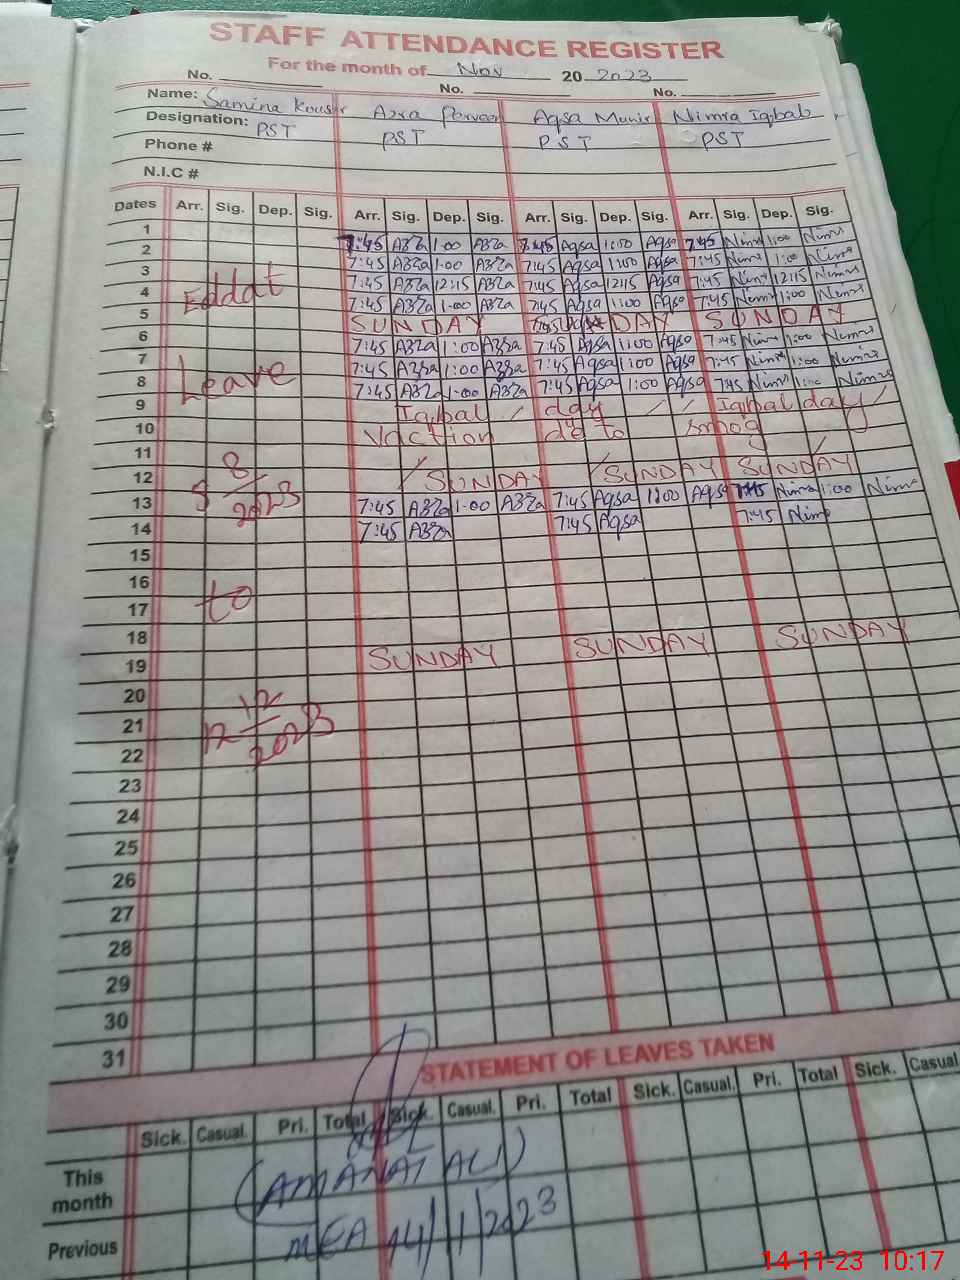 STAFF ATTENDANCE REGISTER
For the month of Nov 20 2023
No. No. No.
Name: Samina Kousar Azra Perveen Aqsa Munir Nimra Iqbal
Designation: PST PST PST PST
Phone #
N.I.C #
Dates Arr. Sig. Dep. Sig. Arr. Sig. Dep. Sig. Arr. Sig. Dep. Sig. Arr. Sig. Dep. Sig.
1 7:45 Azra 1:00 Azra 7:45 Aqsa 1:00 Aqsa 7:45 Nimra 1:00 Nimra
2 7:45 Azra 1:00 Azra 7:45 Aqsa 1:00 Aqsa 7:45 Nimra 1:00 Nimra
3 7:45 Azra 12:15 Azra 7:45 Aqsa 12:15 Aqsa 7:45 Nimra 12:15 Nimra
4 Eddat 7:45 Azra 1:00 Azra 7:45 Aqsa 1:00 Aqsa 7:45 Nimra 1:00 Nimra
5 SUNDAY DAY SUNDAY
6 7:45 Azra 1:00 Azra 7:45 Aqsa 1:00 Aqsa 7:45 Nimra 1:00 Nimra
7 7:45 Azra 1:00 Azra 7:45 Aqsa 1:00 Aqsa 7:45 Nimra 1:00 Nimra
8 Leave 7:45 Azra 1:00 Azra 7:45 Aqsa 1:00 Aqsa 7:45 Nimra 1:00 Nimra
9 Iqbal / day / / Iqbal day /
10 Vaction de to smog
11
12 8 / SUNDAY / SUNDAY SUNDAY /
13 5 2023 7:45 Azra 1:00 Azra 7:45 Aqsa 1:00 Aqsa 7:45 Nimra 1:00 Nimra
14 7:45 Azra 7:45 Aqsa 7:45 Nimra
15
16
17 to
18
19 SUNDAY SUNDAY SUNDAY
20
21 12 12 2023
22
23
24
25
26
27
28
29
30
31
STATEMENT OF LEAVES TAKEN
Sick. Casual. Pri. Total Sick. Casual. Pri. Total Sick. Casual. Pri. Total Sick. Casual
This month
(AMANAT ALI)
Previous MEA 14/1/2023
14-11-23 10:17